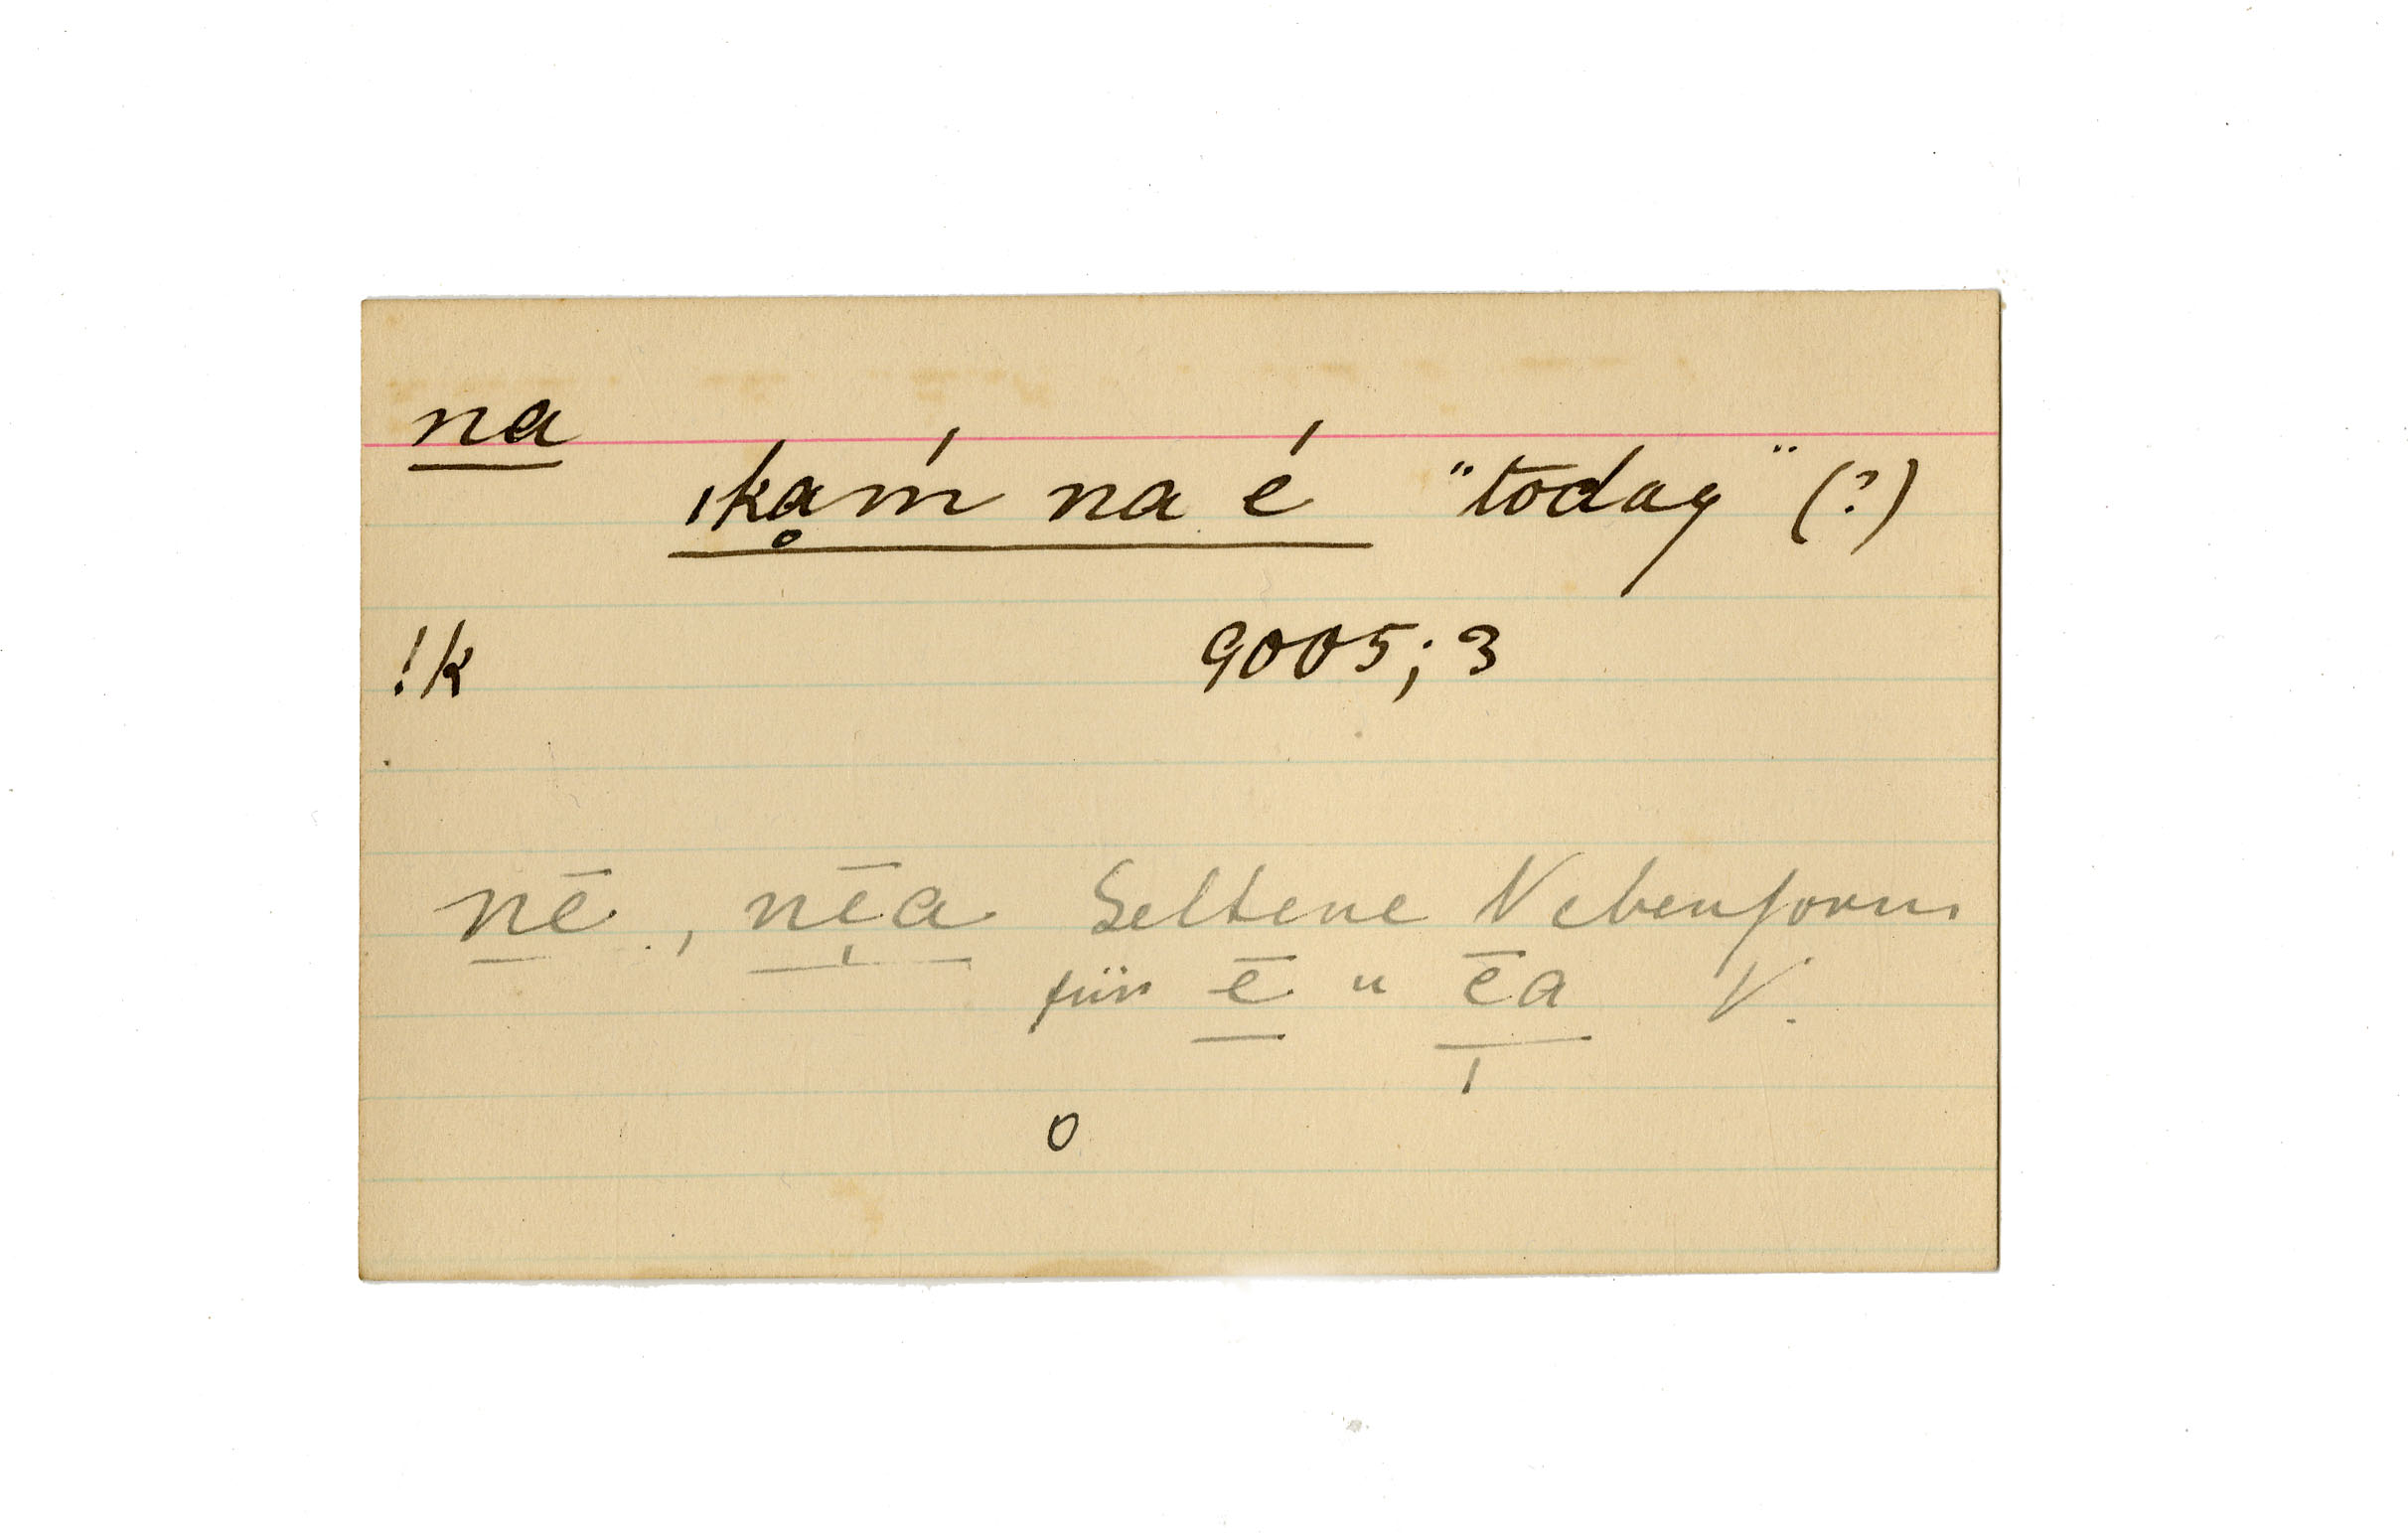 na
ıkḁḿ na é "today" (?)
!k 9005; 3
nē, nē̩a Seltene Nebenform
für ē u ē̩a V.
o